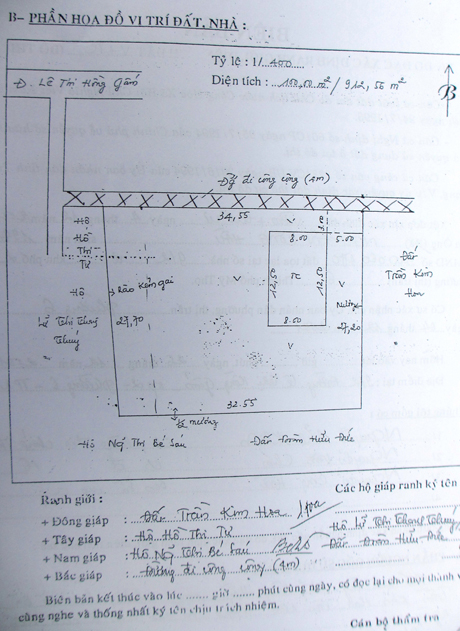 B– PHẦN HOA ĐỒ VỊ TRÍ ĐẤT, NHÀ :
Tỷ lệ : 1/..400....
Diện tích : ..100,00 m²/ 912,56 m²
Đ. Lê Thị Hồng Gấm
B
Đg đi công cộng (4m)
34,55
Hộ
Hồ
Thị
Tư
V
8.00
5.00
Đất
Trần Kim
Hoa
Hộ
Rào Kẽm gai
12,50
TC
12,50
Lê Thị Thanh
Thuý
27,70
Mương
27,20
8.00
V
V
32.55
½ mương
Hộ Ngô Thị Bé Sáu
Đất Đoàn Hữu Đức
Ranh giới :
Các hộ giáp ranh ký tên
+ Đông giáp : Đất Trần Kim Hoa
+ Tây giáp : Hộ Hồ Thị Tư Hộ Lê Thị Thanh Thuý
+ Nam giáp : Hộ Ngô Thị Bé Sáu Đất Đoàn Hữu Đức
+ Bắc giáp : Đường đi công cộng (4m)
Biên bản kết thúc vào lúc ....... giờ ....... phút cùng ngày, có đọc lại cho mọi thành
cùng nghe và thống nhất ký tên chịu trách nhiệm.
Cán bộ thẩm tra